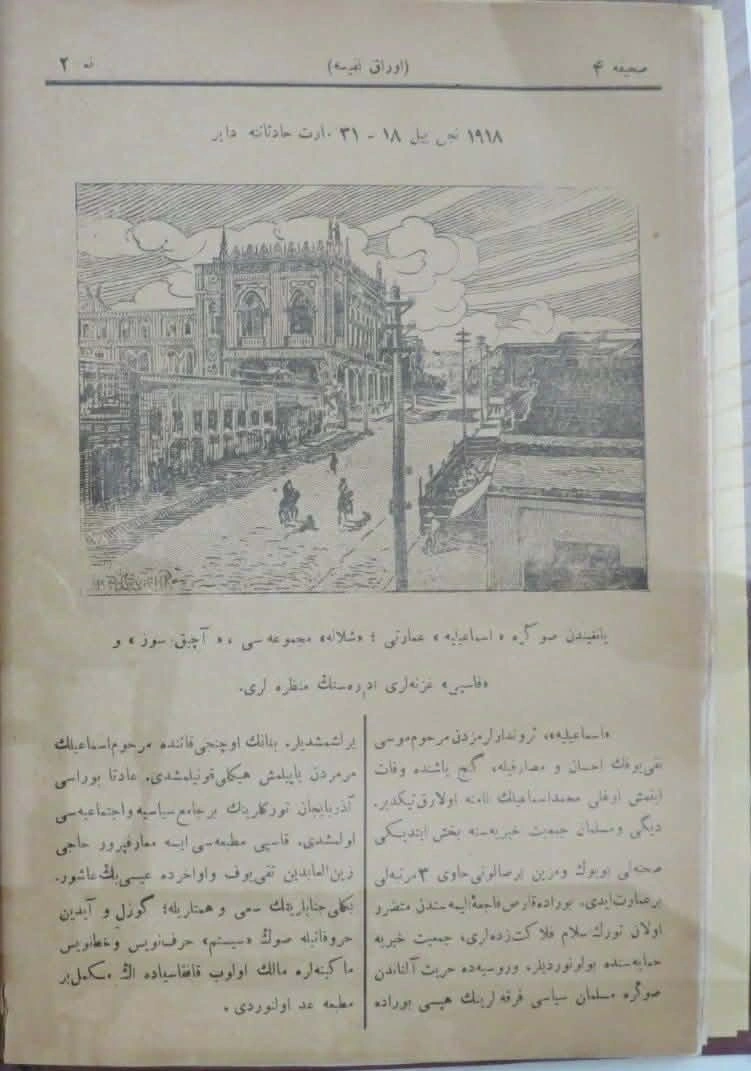 صحیفه ۴
(اوراق نفیسه)
نه ۲
۱۹۱۸ نجی ییل ۱۸ ــ ۳۱ مارت حادثاتنه دایر
یانغیندن صوگره «اسماعیلیه» عمارتی ؛ «شلاله» مجموعه سی ، «آچیق سوز» و
«قاسپی» غزته‌لری اداره‌سنڭ منظره لری.
«اسماعیلیه»، ثروتدارلرمزدن مرحوم موسی
نقی‌یوفك احسان و مصارفیله، گنج یاشنده وفات
ایتمش اوغلی محمداسماعیلك نامنه اولارق تیكدیر.
دیگی و مسلمان جمعیت خیریه‌سنه بخش ایتدیكی
صحنه‌لی بویوك و مزین بر صالونی حاوی ۳ مرتبه‌لی
بر عمارت ایدی. بوراده قارص فاجعهٔ الیمه سندن متضرر
اولان تورك سلام فلاكت زده‌لری، جمعیت خیریه
حمایه‌سنده بولونوردیلر. وروسیه‌ده حریت آلناندن
صوگره مسلمان سیاسی فرقه لرینك هپسی بوراده
یرلشمشدیلر. بنانك اوچنجی قاتنده مرحوم اسماعیلك
مرمردن یاپیلمش هیكلی قونیلمشدی. عادتا بوراسی
آذربایجان تورکلرینك بر جامع سیاسیه و اجتماعیه‌سی
اولمشدی. قاسپی مطبعه‌سی ایسه معارفپرور حاجی
زین العابدین تقی‌یوف و اواخرده عیسی بك عاشور.
بكلی جنابلرینك سعی و همتلریله؛ گوزل و آیدین
حروفاتیله صوڭ «سیستم» حرف‌نویس و خط‌نویس
ماكینه‌لره مالك اولوب قافقاسیاده اڭ مكمل بر
مطبعه عد اولنوردی .